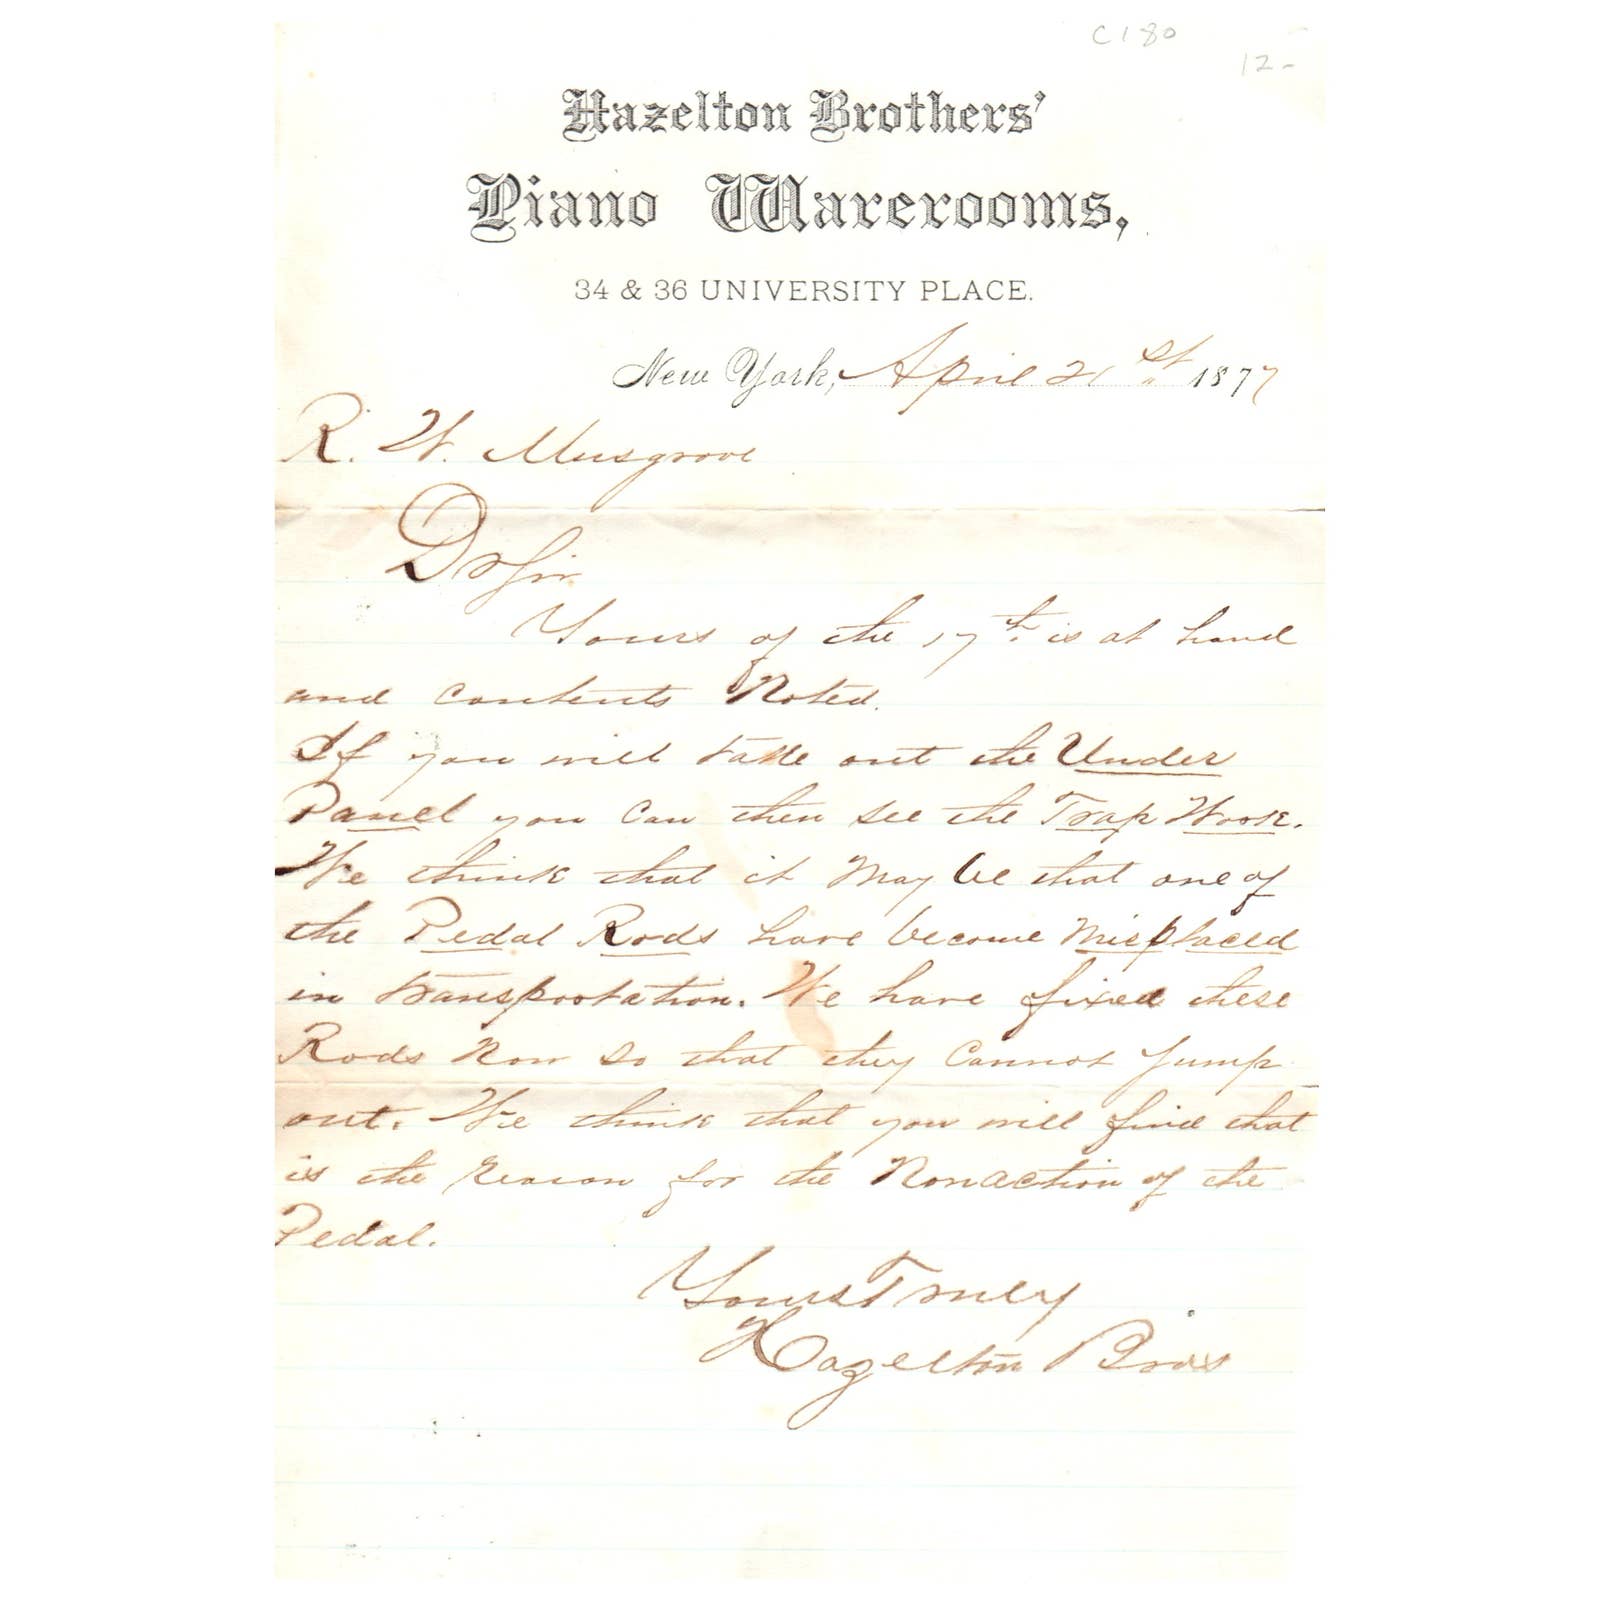 C180
12-
Hazelton Brothers'
Piano Warerooms,
34 & 36 UNIVERSITY PLACE.
New York, April 21st 1877
R. W. Musgrove
Dr Sir
Yours of the 17th is at hand
and contents Noted.
If you will take out the Under
Panel you can then see the Trap Work.
We think that it May be that one of
the Pedal Rods have become Misplaced
in transportation. We have fixed these
Rods Now so that they Cannot Jump
out. We think that you will find that
is the reason for the Nonaction of the
Pedal.
Yours Truly
Hazelton Bros